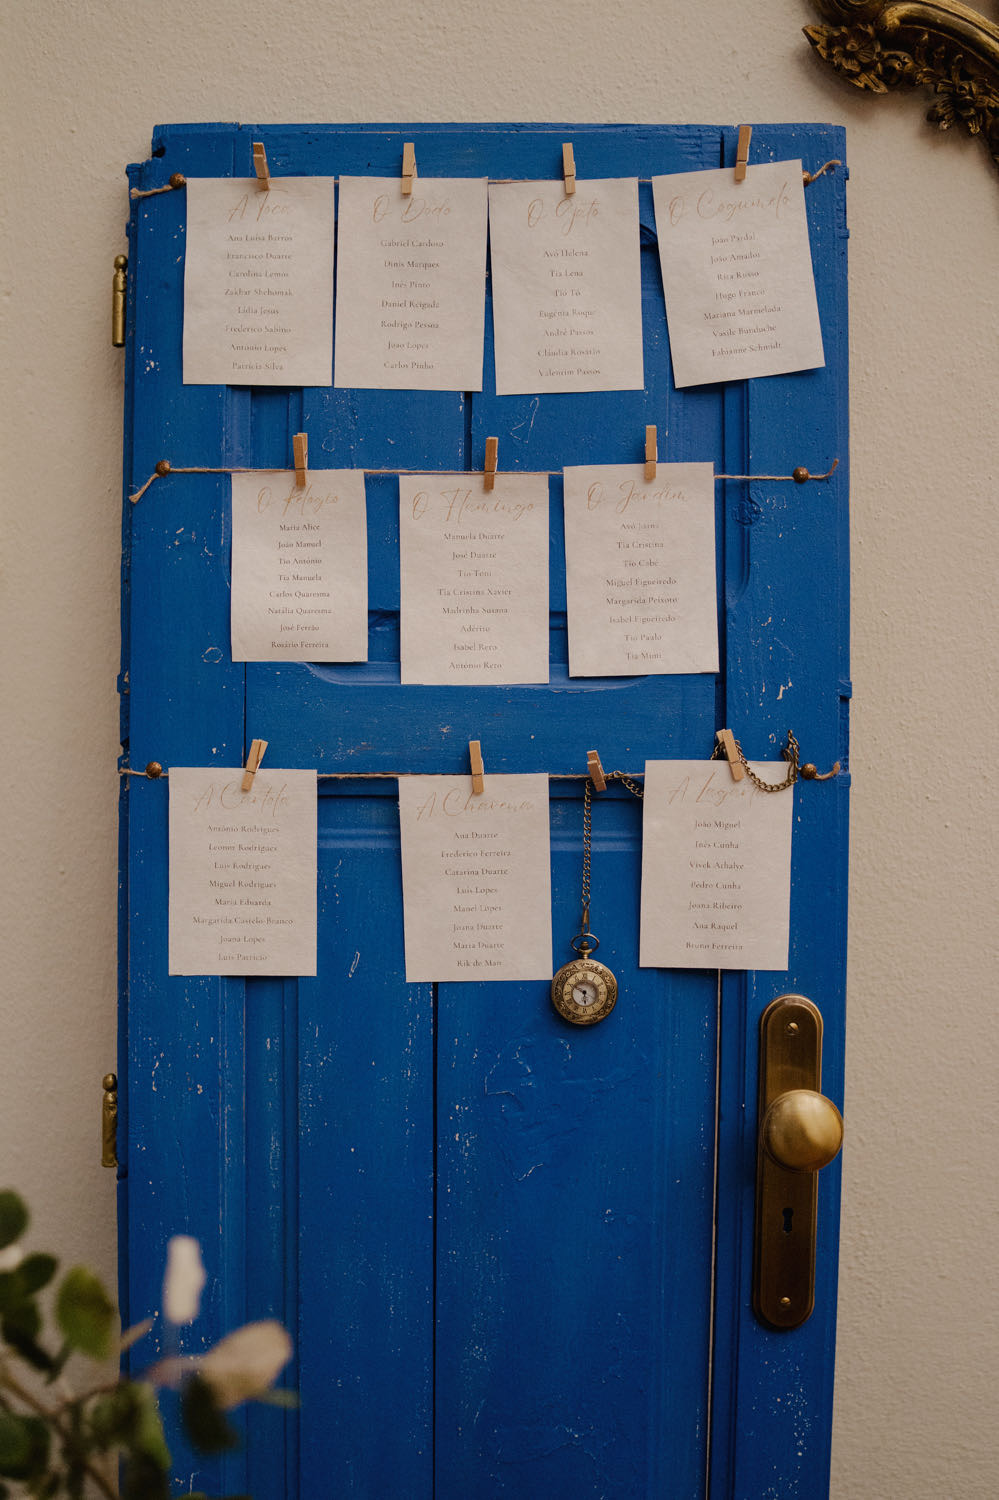 A Toca
Ana Luísa Barros
Francisco Duarte
Carolina Lemos
Zakhar Shchomak
Lídia Jesus
Frederico Sabino
António Lopes
Patrícia Silva
O Dodo
Gabriel Cardoso
Dinis Marques
Inês Pinto
Daniel Reigada
Rodrigo Pessoa
João Lopes
Carlos Pinho
O Gato
Avó Helena
Tia Lena
Tio Tó
Eugénia Roque
André Passos
Cláudia Rosário
Valentim Passos
O Cogumelo
João Pardal
João Amador
Rita Russo
Hugo Franco
Mariana Marmelada
Vasile Bunduche
Fabianne Schmidt
O Relógio
Maria Alice
João Manuel
Tio António
Tia Manuela
Carlos Quaresma
Natália Quaresma
José Ferrão
Rosário Ferreira
O Flamingo
Manuela Duarte
José Duarte
Tio Toni
Tia Cristina Xavier
Madrinha Susana
Adérito
Isabel Reto
António Reto
O Jardim
Avó Joana
Tia Cristina
Tio Cabé
Miguel Figueiredo
Margarida Peixoto
Isabel Figueiredo
Tio Paulo
Tia Mimi
A Cartola
António Rodrigues
Leonor Rodrigues
Luís Rodrigues
Miguel Rodrigues
Maria Eduarda
Margarida Castelo-Branco
Joana Lopes
Luís Patrício
A Chávena
Ana Duarte
Frederico Ferreira
Catarina Duarte
Luís Lopes
Manel Lopes
Joana Duarte
Marta Duarte
Rik de Man
A Lagarta
João Miguel
Inês Cunha
Vivek Athalye
Pedro Cunha
Joana Ribeiro
Ana Raquel
Bruno Ferreira